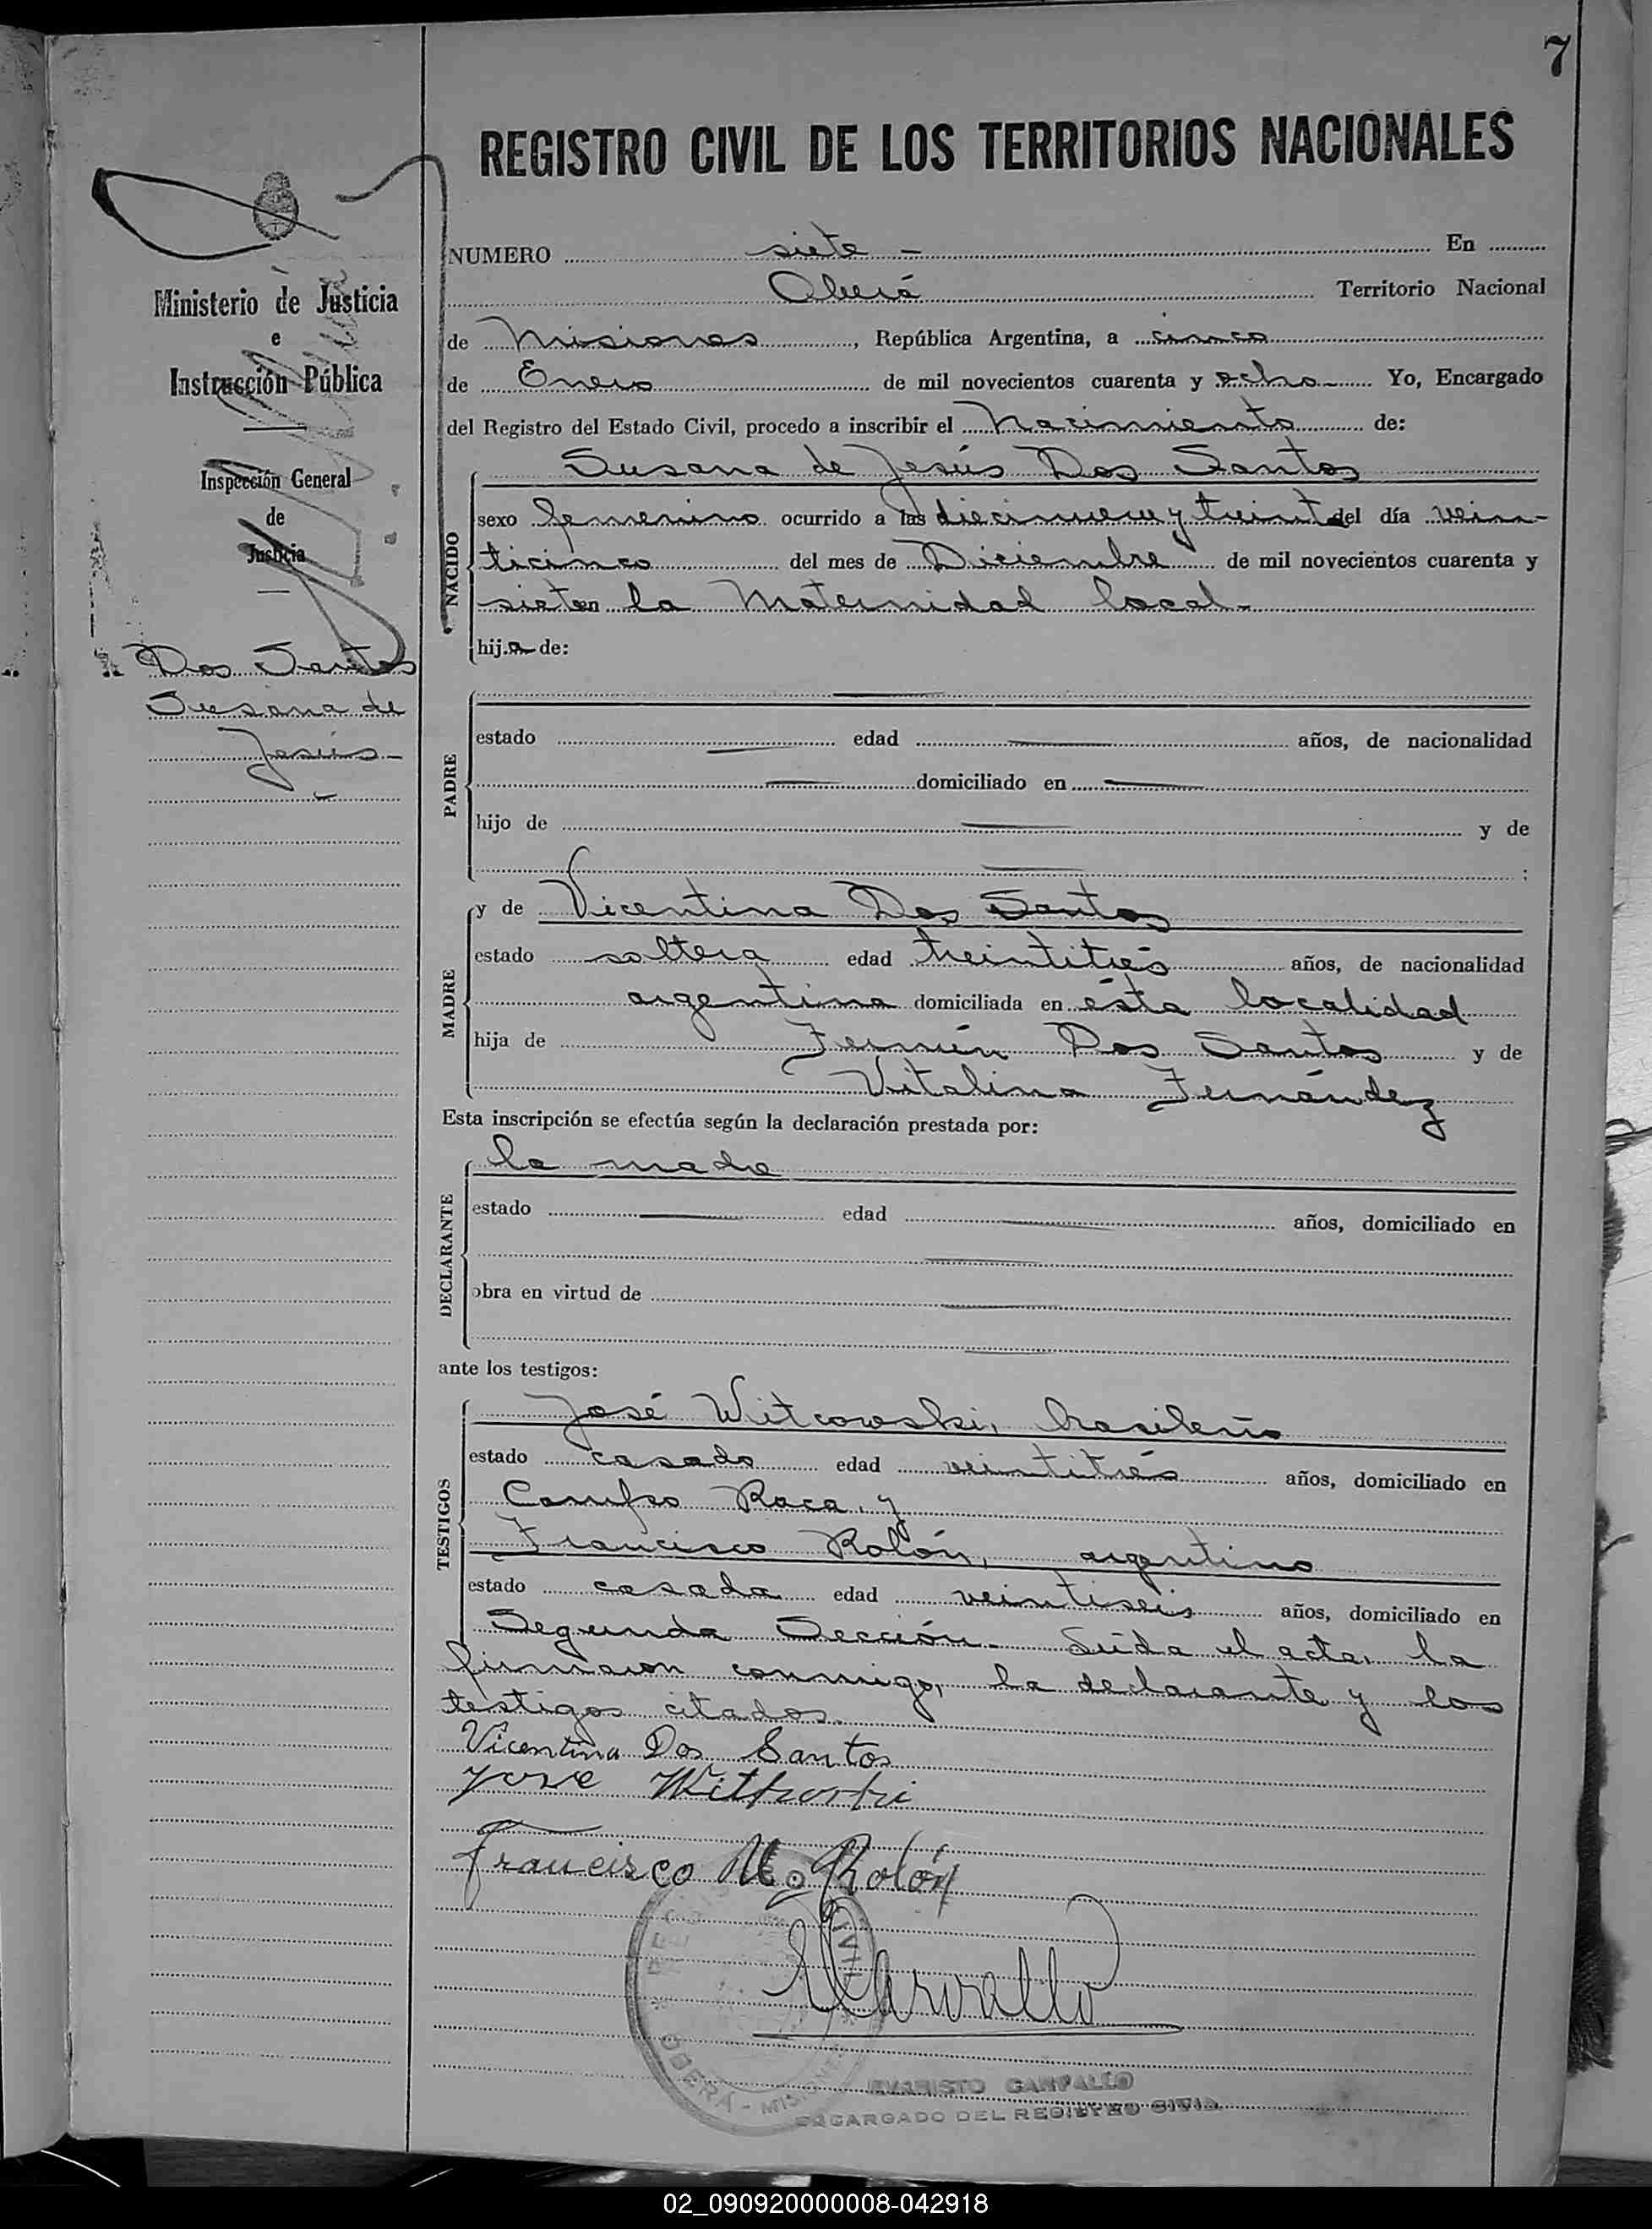 7
REGISTRO CIVIL DE LOS TERRITORIOS NACIONALES
Ministerio de Justicia
e
Instrucción Pública
Inspección General
de
Justicia
Dos Santos
Susana de
Jesús-
NUMERO siete - En
Oberá Territorio Nacional
de Misiones, República Argentina, a cinco
de Enero de mil novecientos cuarenta y ocho Yo, Encargado
del Registro del Estado Civil, procedo a inscribir el Nacimiento de:
NACIDO
Susana de Jesús Dos Santos
sexo femenino ocurrido a las diecinueve y treinta del día vein-
ticinco del mes de Diciembre de mil novecientos cuarenta y
siete en la Maternidad local-
hija de:
PADRE
estado edad años, de nacionalidad
domiciliado en
hijo de y de
;
MADRE
y de Vicentina Dos Santos
estado soltera edad treintitrés años, de nacionalidad
argentina domiciliada en ésta localidad
hija de Fermín Dos Santos y de
Vitalina Fernández
Esta inscripción se efectúa según la declaración prestada por:
DECLARANTE
la madre
estado edad años, domiciliado en
obra en virtud de
ante los testigos:
TESTIGOS
José Witcowski, brasileño
estado casado edad veintitrés años, domiciliado en
Campo Roca, y
Francisco Rolón, argentino
estado casado edad veintiseis años, domiciliado en
Segunda Sección- Leída el acta, la
firmaron conmigo, la declarante y los
testigos citados.
Vicentina Dos Santos
José
Francisco M. Rolón
Carvallo
OBERA - MISIONES
EVARISTO CARVALLO
ENCARGADO DEL REGISTRO CIVIL
02_090920000008-042918